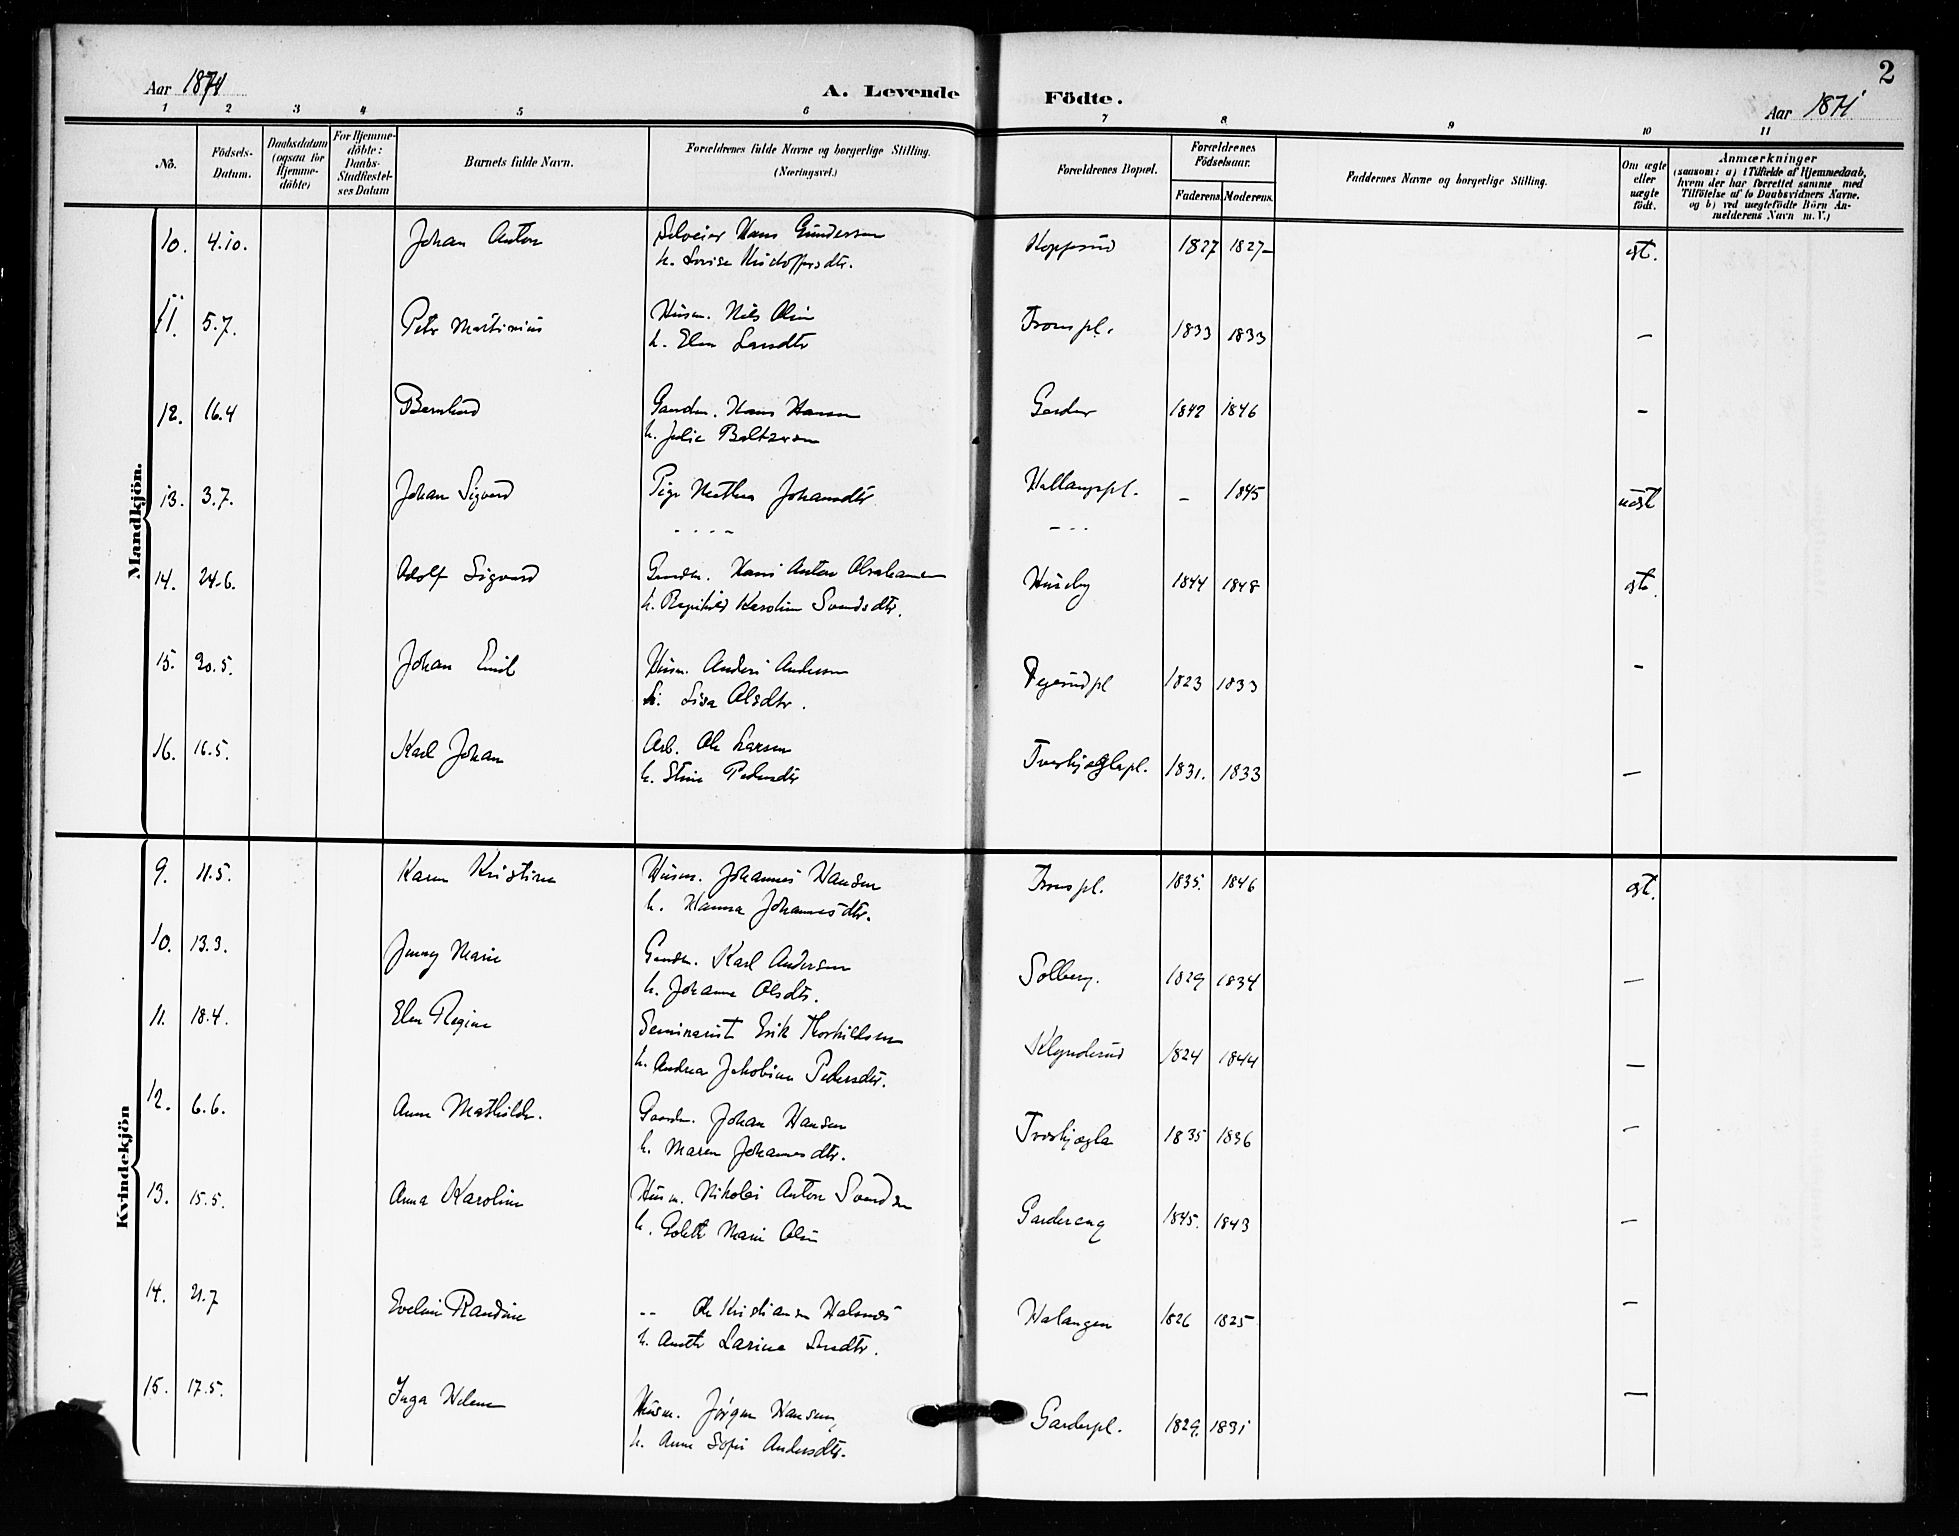 Aar 1871
A. Levende
Födte.
Aar 1871
2
1 2 3 4 5 6 7 8 9 10 11
No.
Födsels-Datum.
Daabsdatum (ogsaa for Hjemme-döbte)
For Hjemme-döbte: Daabs-Stadfæstel-ses Datum
Barnets fulde Navn.
Forældrenes fulde Navne og borgerlige Stilling. (Næringsvei.)
Forældrenes Bopæl.
Forældrenes Födselsaar.
Faderens. Moderens.
Faddernes Navne og borgerlige Stilling.
Om ægte eller uægte födt.
Anmærkninger
(saasom: a) i Tilfælde af Hjemmedaab, hvem der har forrettet samme med Tilföielse af to Daabsvidners Navne. og b) ved uægtefödte Börn An-melderens Navn m.V.)
Mandkjön.
10. 4.10. Johan Anton Hans Gundersen Koppsrud 1827 1827 ægt.
h. Lovise Kristoffersdtr.
11. 5.7. Petr Martinius Husm. Nils Olsen Tronspl. 1833 1833 —
h. Elen Larsdtr
12. 16.4 Bernhard Gaardm. Hans Hansen Garder 1842 1846 —
h. Julie Baltzersen
13. 3.7. Johan Sigvard Pige Mathea Johansdtr Hallangspl. — 1845 uægt
- - - - - - -
14. 24.6. Adolf Sigvard Gaardm. Hans Anton Abrahamsen Huseby 1844 1848 ægt.
h. Ragnhild Karoline Svendsdtr.
15. 20.5. Johan Emil Husm. Anders Andersen 1823 1833 —
h. Lisa Olsdtr.
16. 16.5. Karl Johan Arb. Ole Larsen Tverkjæglapl. 1831. 1833 —
h. Stine Pedersdtr
Kvindekjön
9. 11.5. Karen Kristine Husm. Johannes Hansen Tronspl. 1835. 1846 ægt.
h. Hanna Johannesdtr.
10. 13.3. Jenny Marie Gaardm. Karl Andersen Solberg. 1829 1834 —
h. Johanne Olsdtr.
11. 18.4. Elen Regine Seminarist Erik Thorkildsen Klynderud 1824 1844 —
h. Andrea Jakobine Pedersdtr.
12. 6.6. Anne Mathilde. Gaardm. Johan Hansen Tverkjægla 1835 1836 —
h. Maren Johannesdtr.
13. 15.5. Anna Karoline Husm. Nikolai Anton Svendsen Gardereng 1845. 1843 —
h. Marie Olsen
14. 21.7 Eveline Randine -- Ole Kristiansen Halangen 1826 1825 —
h. Anette Larine
15. 17.5. Inga Helene Husm. Jørgen Hansen Garderpl. 1829. 1831 —
h. Anne Sofie Andersdtr.